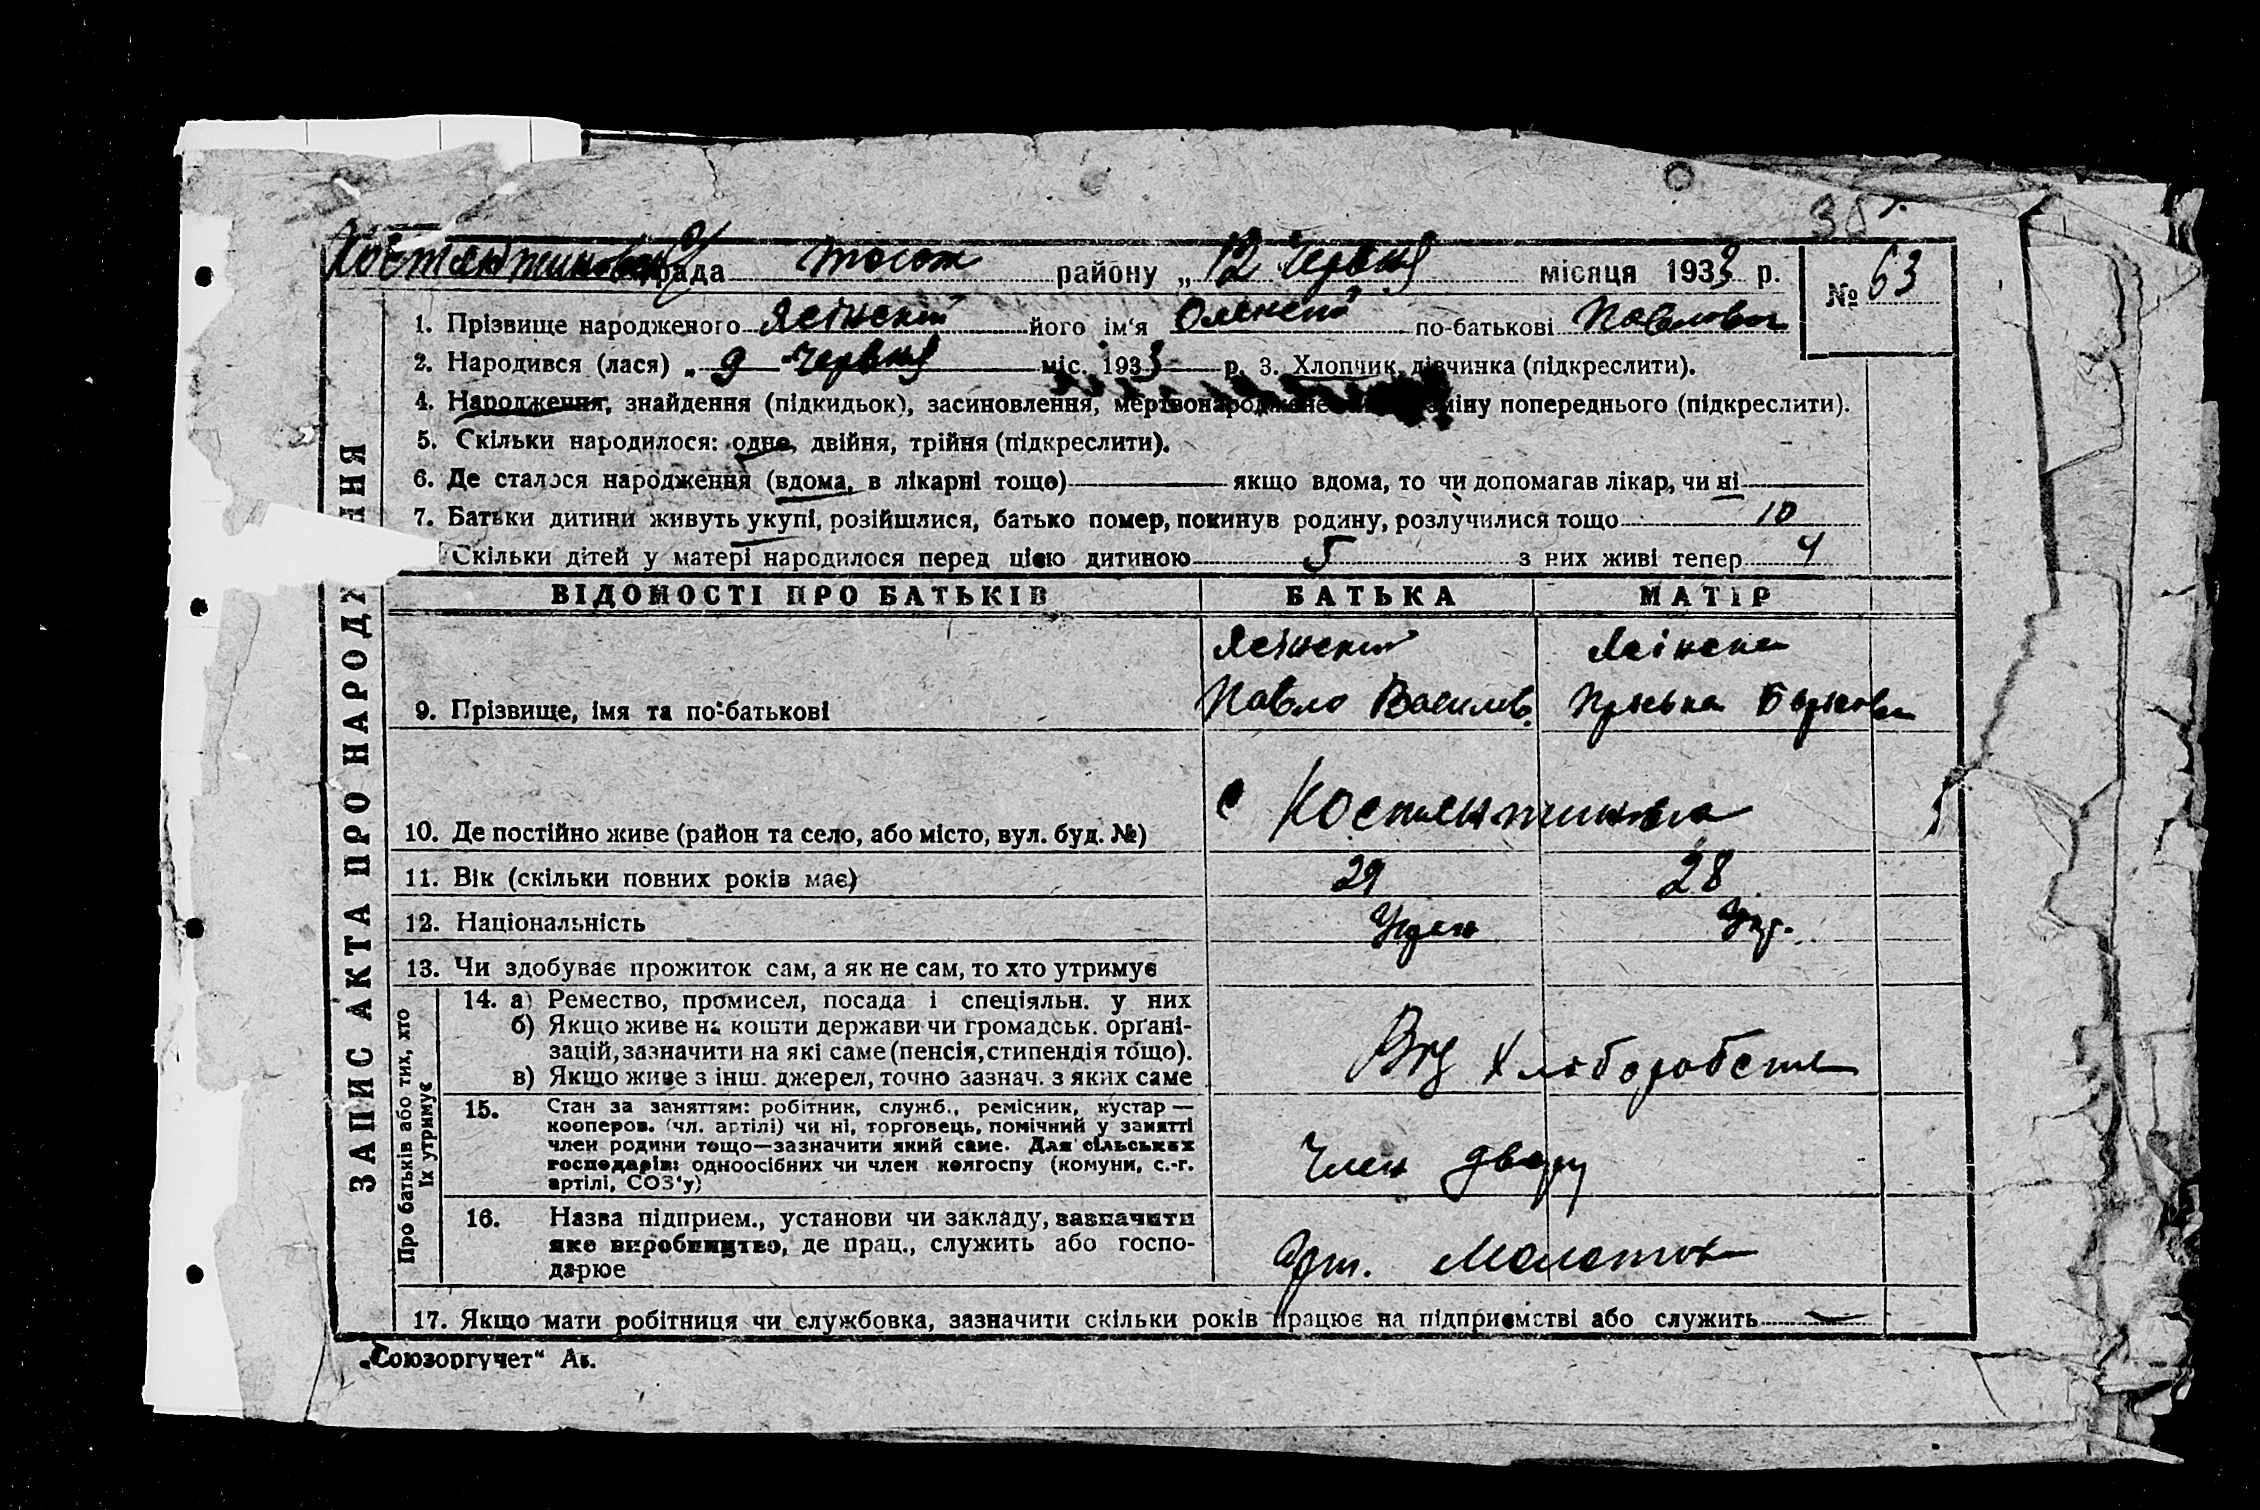 35
рада район у „ 12 " Червня місяця 1933 р. № 63
1. Прізвище народженого Ясінский його ім'я по-батькові Павлович
2. Народився (лася) „ 9 " Червня міс. 1933 р. 3. Хлопчик, дівчинка (підкреслити).
4. Народження, знайдення (підкидьок), засиновлення, мертвонароджене міну попереднього (підкреслити).
5. Скільки народилося: одне, двійня, трійня (підкреслити).
6. Де сталося народження (вдома, в лікарні тощо) якщо вдома, то чи допомагав лікар, чи ні
7. Батьки дитини живуть укупі, розійшлися, батько помер, покинув родину, розлучилися тощо 10
Скільки дітей у матері народилося перед цією дитиною 5 з них живі тепер 4
ВІДОМОСТІ ПРО БАТЬКІВ БАТЬКА МАТІР
Ясінский Ясінска
9. Прізвище, імя та по-батькові Павло Василов. Пріська
10. Де постійно живе (район та село, або місто, вул. буд. №) с Костянтинівка
11. Вік (скільки повних років має) 29 28
12. Національність Украін Укр.
13. Чи здобуває прожиток сам, а як не сам, то хто утримує
14. а) Ремество, промисел, посада і спеціяльн. у них
б) Якщо живе на кошти держави чи громадськ. орґані-
зацій, зазначити на які саме (пенсія, стипендія тощо).
в) Якщо живе з інш. джерел, точно зазнач. з яких саме
Хліборобств
15. Стан за заняттям: робітник, служб., ремісник, кустар —
кооперов. (чл. артілі) чи ні, торговець, помічний у занятті
член родини тощо—зазначити який саме. Для сільських
господарів: одноосібних чи член колгоспу (комуни, с.-г.
артілі, СОЗ'у)
Член двору
16. Назва підприєм., установи чи закладу, зазначити
яке виробництво, де прац., служить або госпо-
дарює
Арт. Молоток
17. Якщо мати робітниця чи службовка, зазначити скільки років працює на підприємстві або служить —
„Союзоргучет"
ЗАПИС АКТА ПРО НАРОДЖ ННЯ
Про батьків або тих, хто
їх утримує